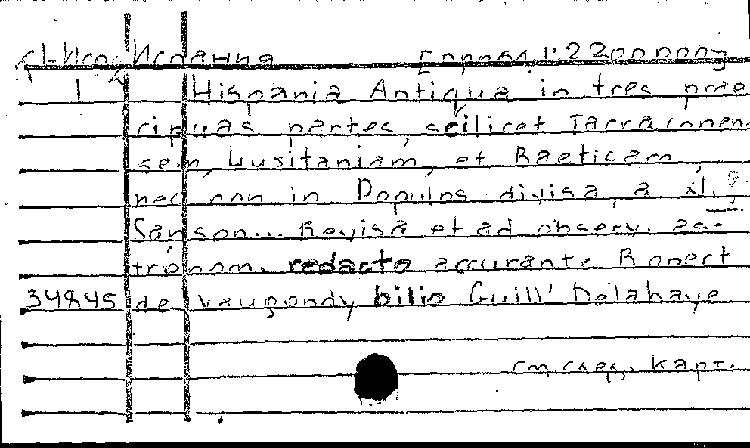 Q1-Исп Испания [около 1:2200000]
1 Hispania Antiqua in tres prae
cipuas partes, scilicet Tarraconen
sem, Lusitaniam, et Baeticam,
nec non in Populos divisa, a
Sanson... Revisa et ad observ. as-
tronom. redacto accurante Robert
34845 de Vaugondy filio Guill' Delahaye
См. след. карт.